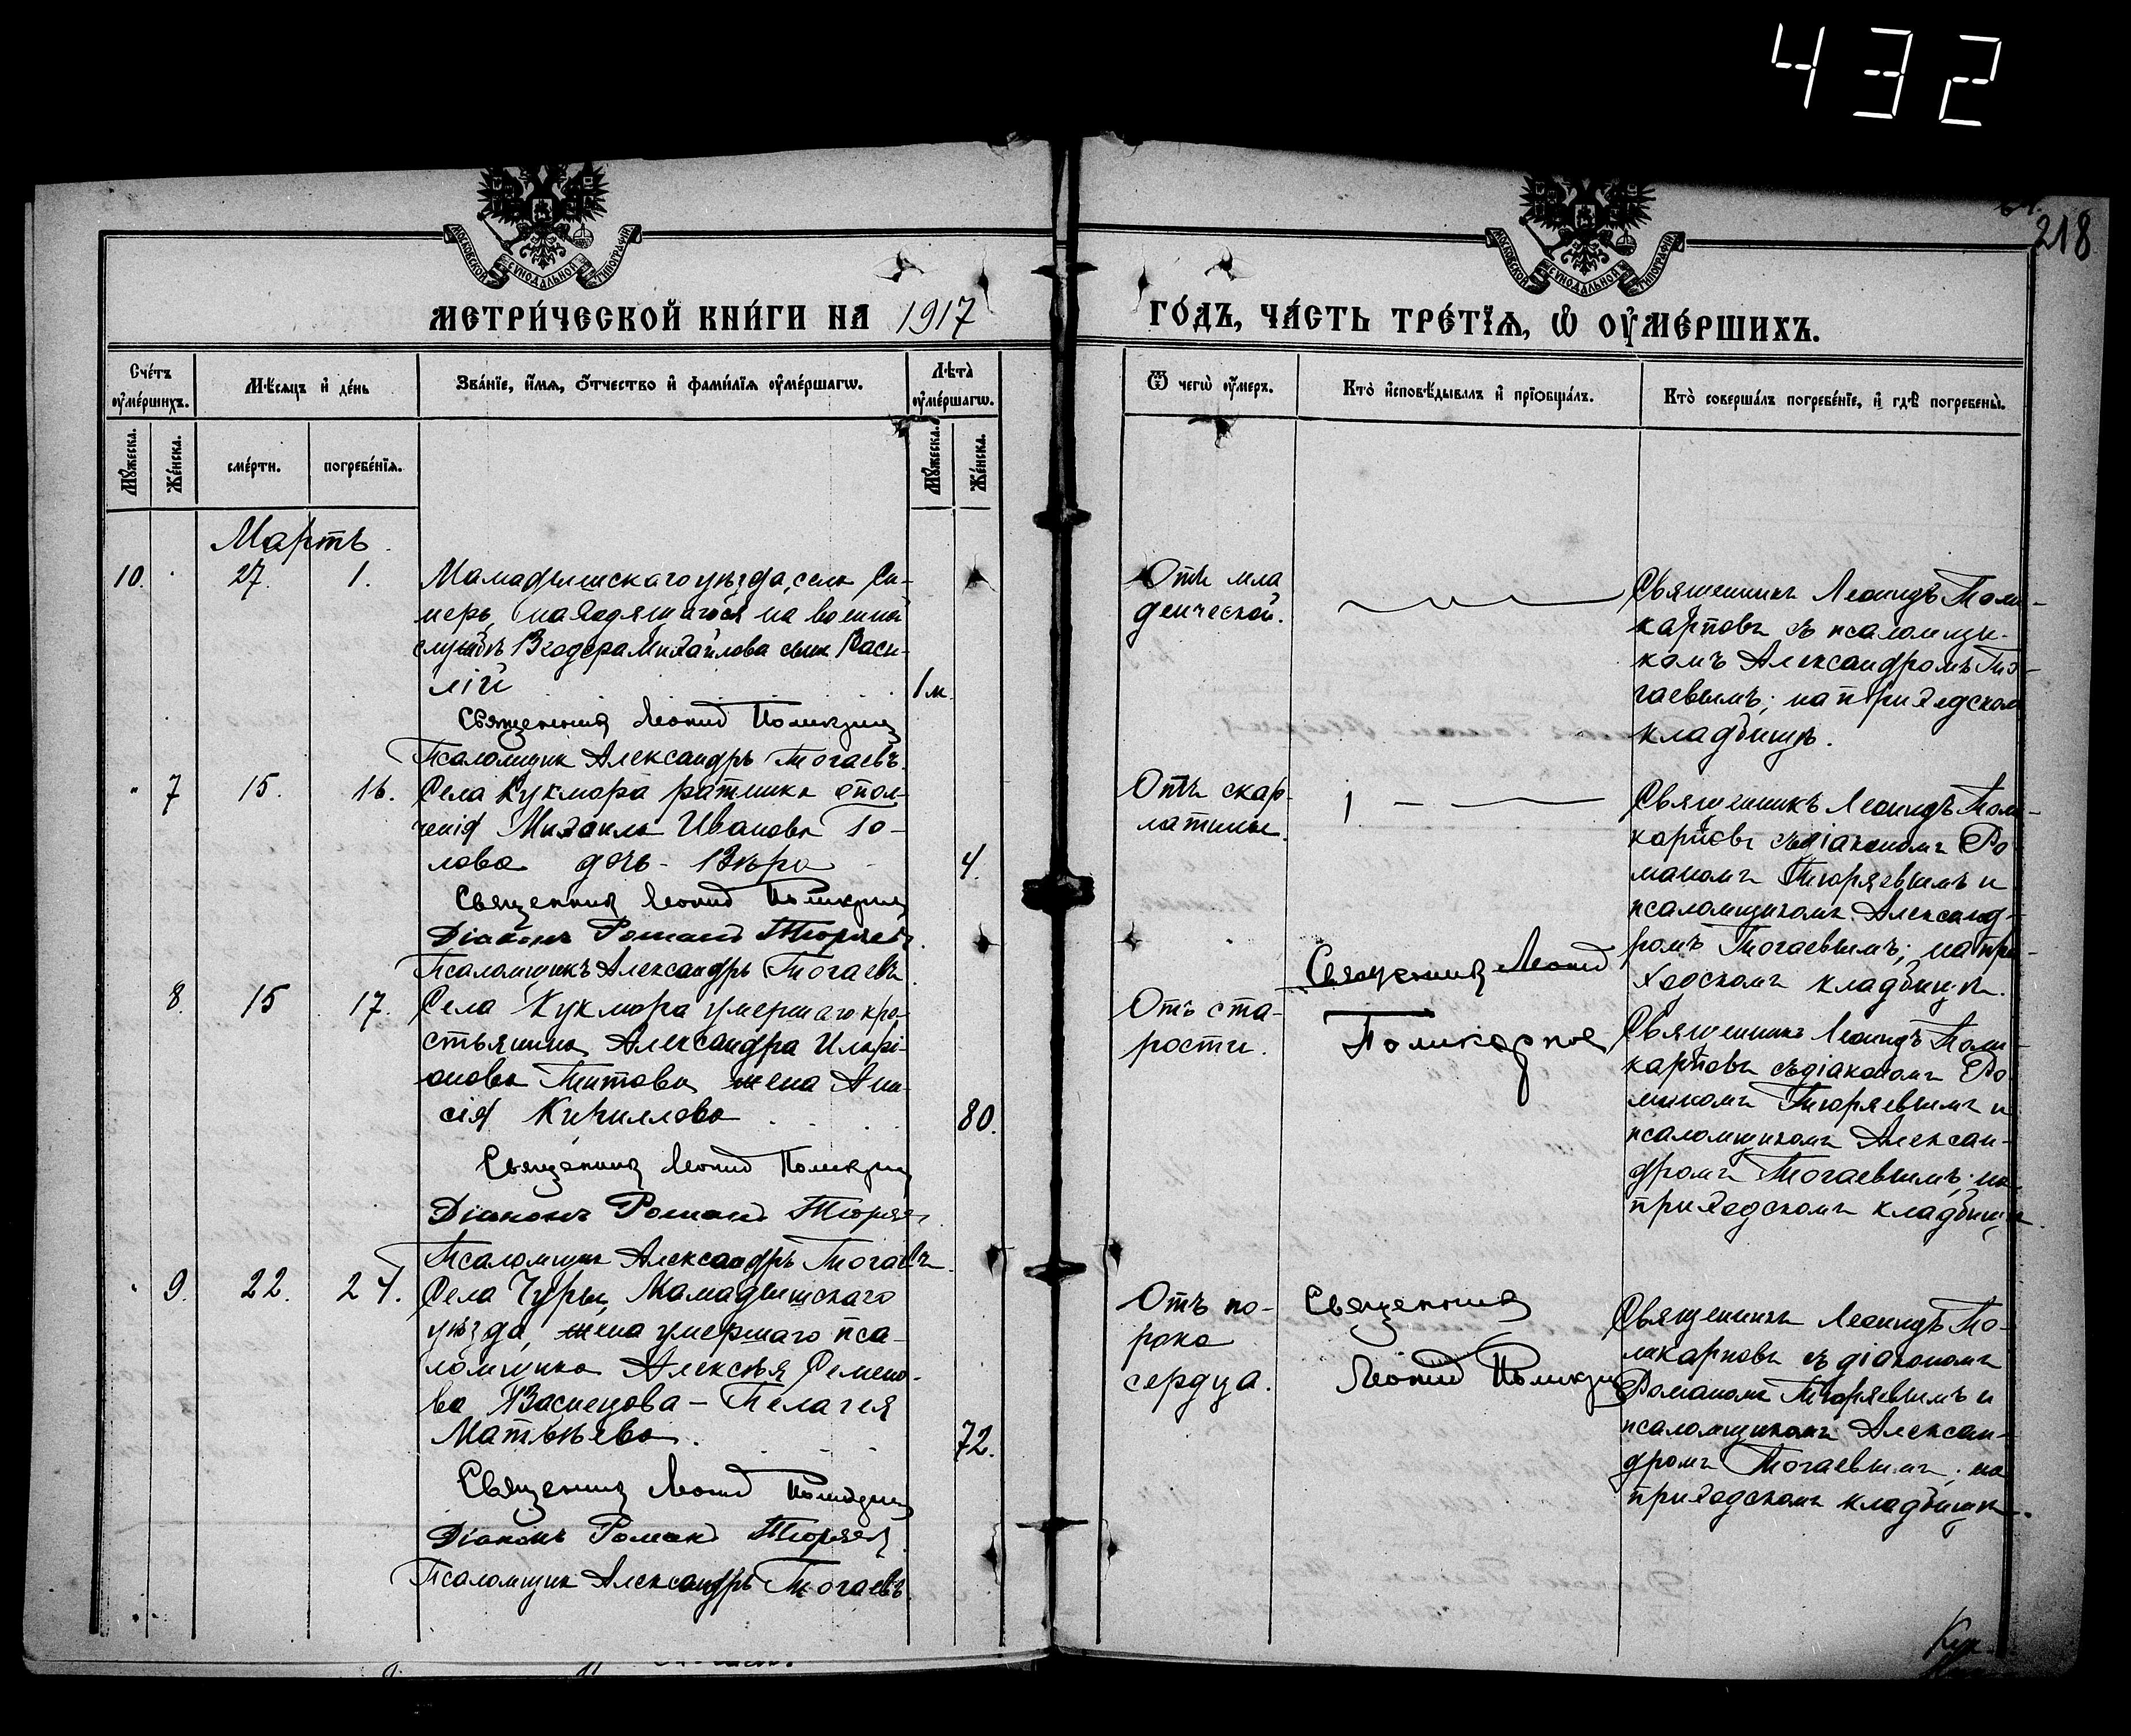 432
218
МОСКОВСКОЙ СѴНОДАЛЬНОЙ ТИПОГРАФІИ
МОСКОВСКОЙ СѴНОДАЛЬНОЙ ТИПОГРАФІИ
МЕТРИ́ЧЕСКОЙ КНИ́ГИ НА 1917
ГО́ДЪ, ЧА́СТЬ ТРЕ́ТЇѦ, Ѽ ОУ҆МЕ́РШИХЪ.
Сче́тъ оу҆ме́ршихъ.
Мѣ́сяцъ и҆ де́нь
Зва́нїе, и҆́мѧ, ѻ҆́тчество и҆ фами́лїѧ оу҆ме́ршагѡ.
Лѣта̀ оу҆ме́ршагѡ.
Ѿ чегѡ̀ оу҆́меръ.
Кто̀ и҆сповѣ́дывалъ и҆ прїобща́лъ.
Кто̀ соверша́лъ погребе́нїе, и҆ гдѣ̀ погребены̀.
Мꙋ́жеска.
Же́нска.
сме́рти.
погребе́нїѧ.
Мꙋ́жеска.
Же́нска.
Мартъ.
10. 27. 1.
Мамадышскаго уѣзда, села Си-
мерь, находящагося на военной
службѣ Ѳеодора Михайлова сынъ Васи-
лій 1 м.
Священникъ Леонид Поликарпов
Псаломщик Александръ Тогаевъ.
Отъ мла
денческой.
Священникъ Леонидъ Поли-
карповъ съ псаломщи-
комъ Александромъ То-
гаевымъ; на приходском
кладбищѣ.
" 7 15. 16.
Села Кукмора ратника опол-
ченія Михаила Иванова Го-
лова дочь - Вѣра 4.
Священникъ Леонид Поликарпов
Діаконъ Роман Тюряев.
Псаломщикъ Александръ Тогаевъ
Отъ скар-
латины.
Священникъ Леонидъ Поли-
карповъ съ діакономъ Ро
маномъ Тюряевымъ и
псаломщикомъ Александ-
ромъ Тогаевымъ; на при-
ходскомъ кладбищѣ.
8. 15 17.
Села Кукмора умершаго кре-
стьянина Александра Иларі-
онова Титова жена Ани-
сія Кириллова 80.
Священникъ Леонид Поликарпов
Діаконъ Роман Тюряев
Псаломщик Александръ Тогаевъ.
Отъ ста-
рости.
Священникъ Леонид
Поликарпов
Священникъ Леонидъ Поли-
карповъ съ діакономъ Ро
маномъ Тюряевымъ и
псаломщикомъ Алексан-
дромъ Тогаевымъ; на
приходскомъ кладбищѣ.
" 9. 22. 24.
Села Чуры, Мамадышскаго
уѣзда, жена умершаго пса-
ломщика Алексѣя Семено-
ва Васнецова - Пелагея
Матвѣева. 72.
Священникъ Леонид Поликарпов
Діаконъ Роман Тюряев.
Псаломщик Александръ Тогаевъ
Отъ по-
рока
сердца.
Священникъ
Леонид Поликарпов
Священникъ Леонидъ По-
ликарповъ съ діакономъ
Романомъ Тюряевымъ и
псаломщикомъ Алексан-
дромъ Тогаевымъ; на
приходскомъ кладбищѣ.